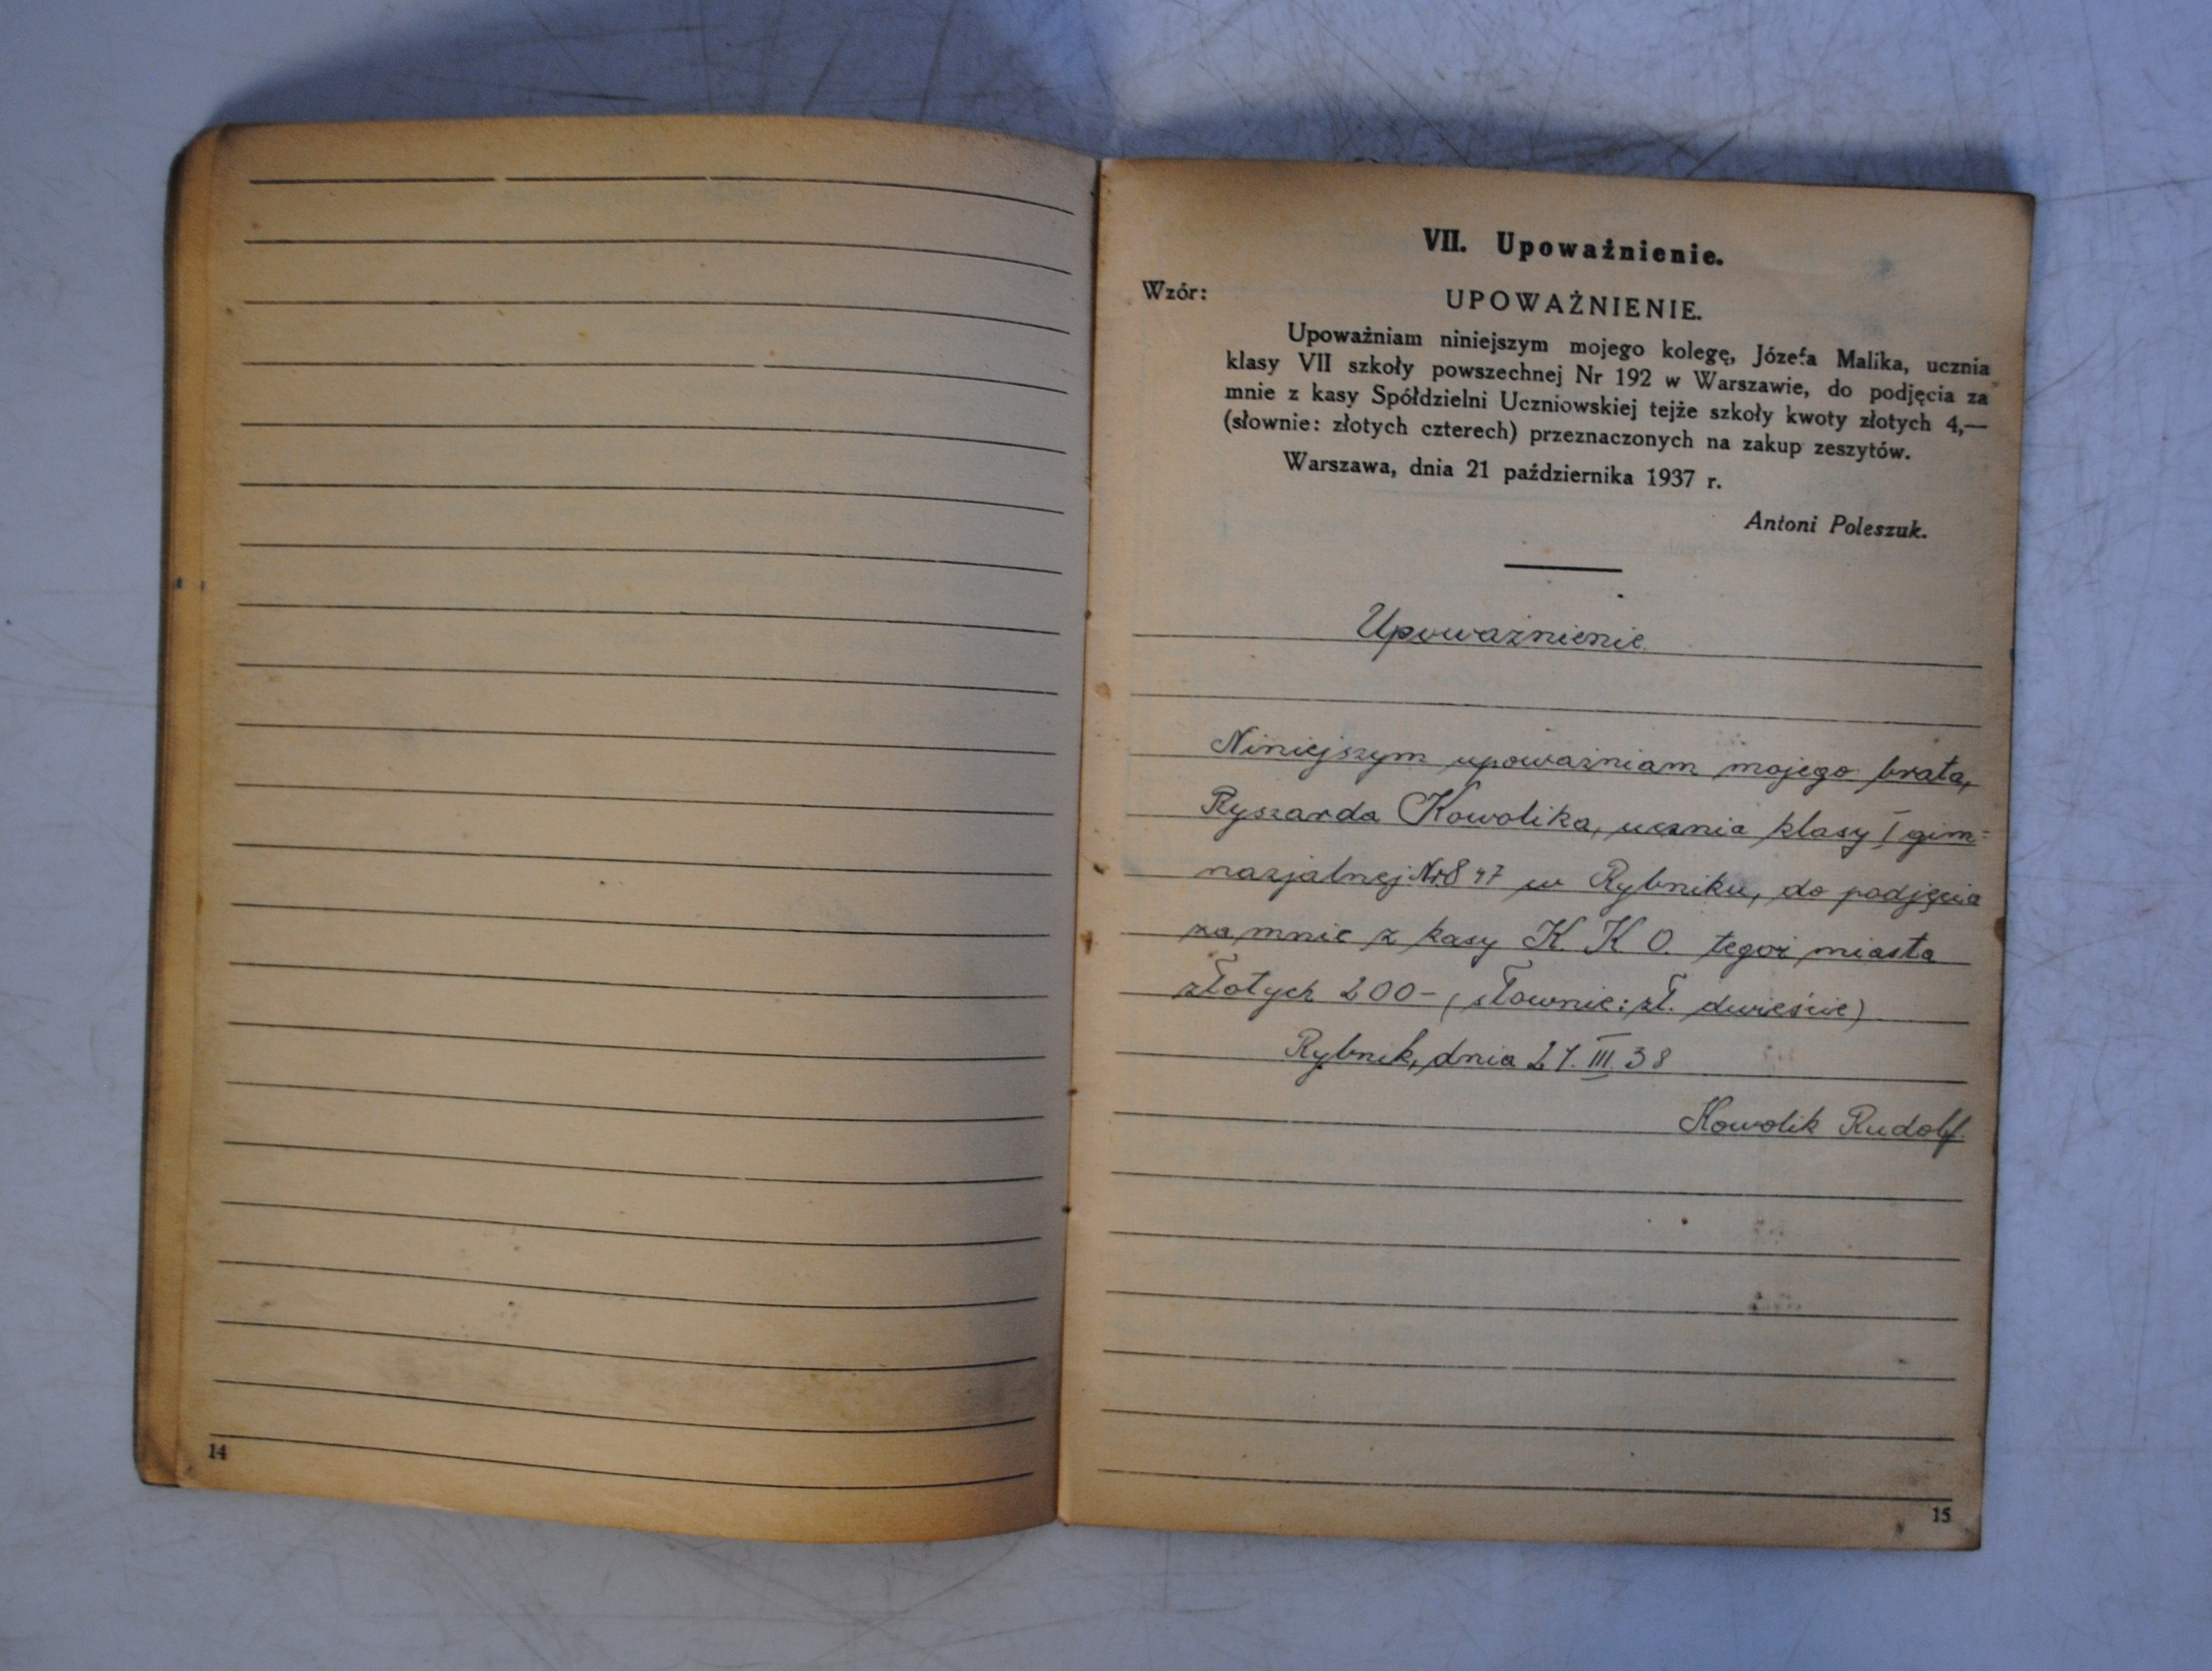 14
VII. Upoważnienie.
Wzór:
UPOWAŻNIENIE.
Upoważniam niniejszym mojego kolegę, Józefa Malika, ucznia
klasy VII szkoły powszechnej Nr 192 w Warszawie, do podjęcia za
mnie z kasy Spółdzielni Uczniowskiej tejże szkoły kwoty złotych 4,—
(słownie: złotych czterech) przeznaczonych na zakup zeszytów.
Warszawa, dnia 21 października 1937 r.
Antoni Poleszuk.
Upoważnienie.
Niniejszym upoważniam mojego brata,
Ryszarda Kowolika, ucznia klasy I gim=
nazjalnej Nr 847 w Rybniku, do podjęcia
za mnie z kasy K. K. O. tegoż miasta
złotych 200- (słownie: zł. dwieście)
Rybnik, dnia III. 38
Kowolik Rudolf.
15